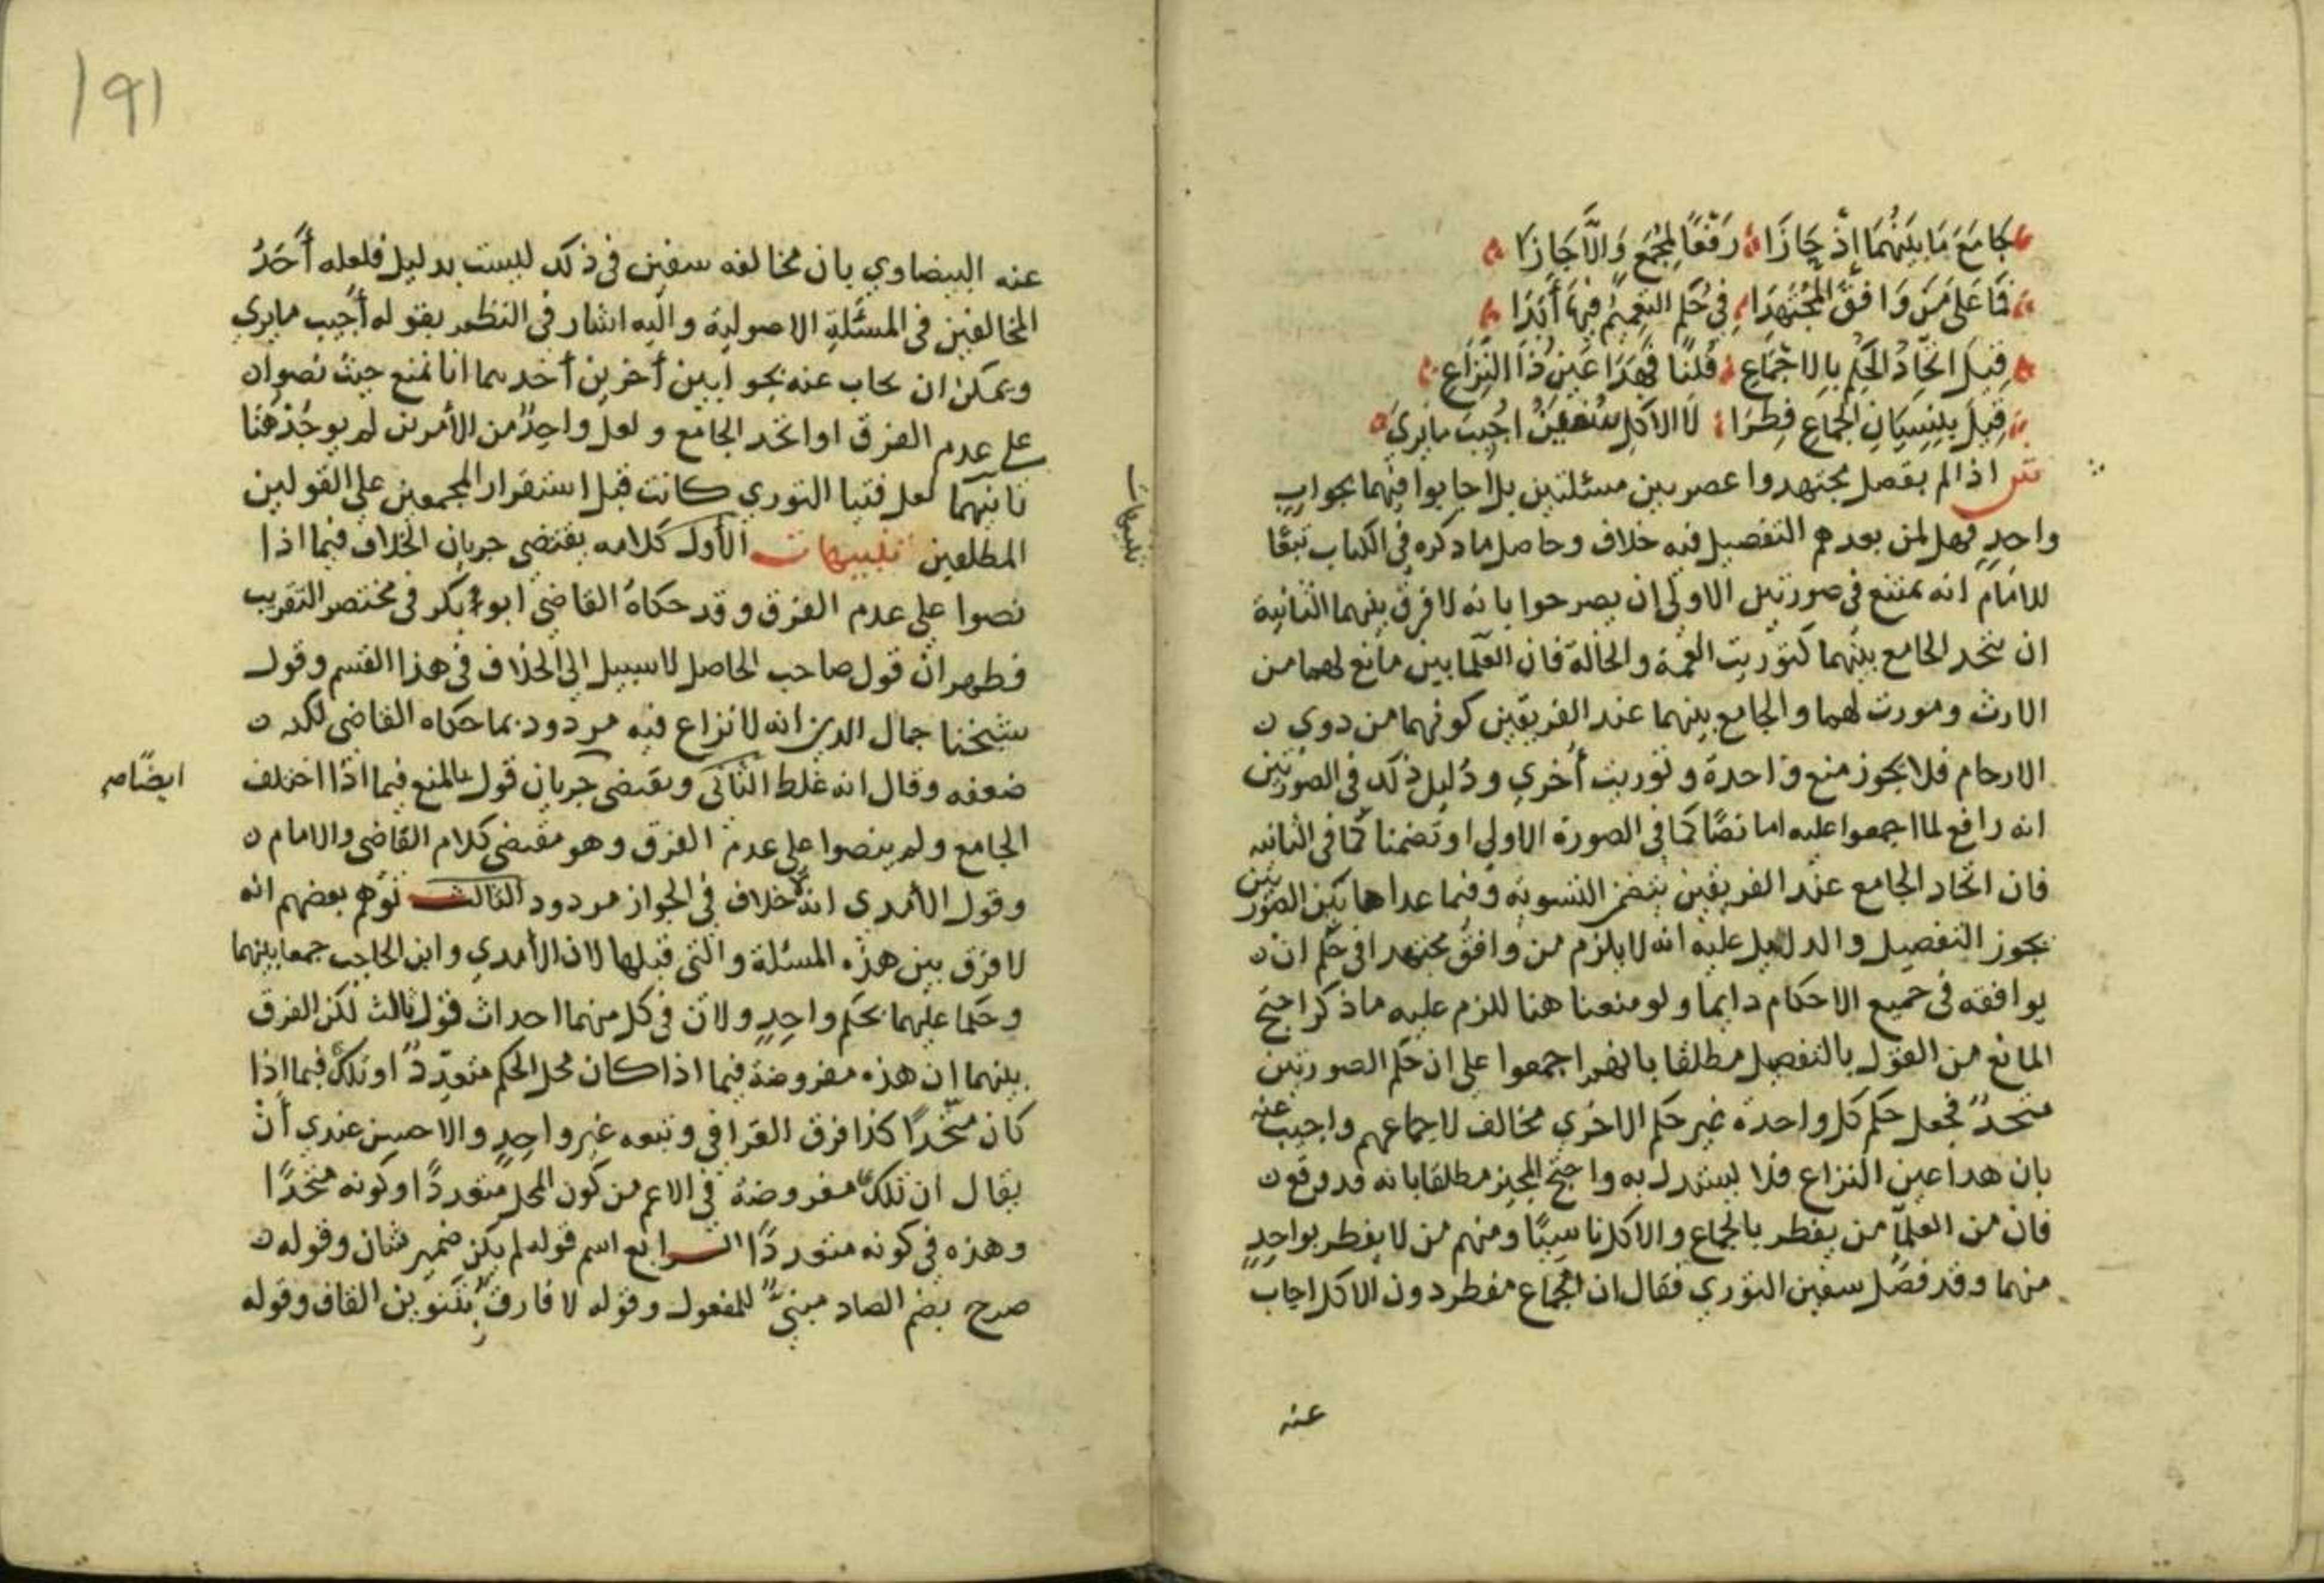 جَامَعَ مَا بَيْنَهُمَا إذْ حَازَا رَفْعًا لِمُجْمَعٍ وَالَّا جَازَا
فَمَا عَلَى مَنْ وَافَقَ الْمُجْتَهِدَا فِي حُكْمٍ التَّعْمِيْمُ فِيهَا أَبَدَا
قِيلَ اتِّحَادُ الحُكْمِ بِالاجْمَاعِ قُلْنَا فَهَذَا عَيْنُ ذَا النِّزَاعِ
قِيلَ بِنِسْيَانِ الجِمَاعِ فطرَا لَا الاكْلِ سُفْيَنُ اُجِيبَ مَا يُرَىَ
ش اذا لم يفصل مجتهدوا عصر بين مسئلتين بل اجابوا فيهما بجواب
واحدٍ فهل لمن بعدهم التفصيل فيه خلاف وحاصل ما ذكره في الكتاب تبعًا
للامام انه يمتنع في صورتين الاولى ان يصرحوا بانه لا فرق بينهما الثانية
ان يتحد الجامع بينهما كتوريث العمة والخالة فان العلما بين مانع لهما من
الارث ومورث لهما والجامع بينهما عند الفريقين كونهما من ذوي
الارحام فلا يجوز منع واحدة وتوريث أخري ودليل ذلك في الصورتين
انه رافع لما اجمعوا عليه اما نصًا كما في الصورة الاولي او تضمنا كما في الثانيه
فان اتحاد الجامع عند الفريقين يتضمن التسويه وفيما عدا هاتين الصورتين
يجوز التفصيل والدليل عليه انه لا يلزم من وافق مجتهدا في حكم ان
يوافقه في جميع الاحكام دايما ولو منعنا هنا للزم عليه ما ذكر احتج
المانع من القول بالتفصيل مطلقا بانهم اجمعوا علي ان حكم الصورتين
متحدٌ فجعل حكم كل واحدة غير حكم الاخري مخالف لاجماعهم واجيب عنه
بان هذا عين النزاع فلا يستدل به واحتج المجيز مطلقا بانه قد وقع
فان من العلما من يفطر بالجماع والاكل ناسيًا ومنهم من لا يفطر بواحدٍ
منهما وقد فصل سفين الثوري فقال ان الجماع مفطر دون الاكل اجاب
عنه
191
عنه البيضاوي بان مخالفه سفين في ذلك ليست بدليل فلعله أحَدُ
المخالفين في المسئلة الاصولية واليه اشار في النظم بقوله أجيب ما يرى
ويمكن ان يجاب عنه بجوابين أخرين أحدهما انا نمنع حيث نصوا
علي عدم الفرق او اتحد الجامع ولعل واحدٌ من الأمرين لم يوجَدْ هنا
ثانيهما لعل فتيا الثوري كانت قبل استقرار المجمعين علي القولين
المطلقين تنبيهات الأول كلامه يقتضي جريان الخلاف فيما اذا
نصوا علي عدم الفرق وقد حكاه القاضي ابو بكر في مختصر التقريب
فظهر ان قول صاحب الحاصل لا سبيل الى الخلاف في هذا القسم وقول
شيخنا جمال الدين انه لا نزاع فيه مردود بما حكاه القاضي لكنه
ضعفه وقال انه غلط الثاني ويقتضي جريان قول بالمنع فيما اذا اختلف
الجامع ولم ينصوا علي عدم الفرق وهو مقتضى كلام القاضي والامام
وقول الآمدي انه لا خلاف في الجواز مردود الثالث توهم بعضهم انه
لا فرق بين هذه المسئلة والتي قبلها لان الآمدي وابن الحاجب جمعا بينهما
وحكما عليهما بحكم واحدٍ ولان في كل منهما احداث قول ثالث لكن الفرق
بينهما ان هذه مفروضة فيما اذا كان محل الحكم متعدّدًا وتلك فيما اذا
كان متّحدًا كذا فرق القرافي وتبعه غير واحدٍ والاحسن عندي أن
يقال ان تلك مفروضة في الاعم من كون المحل متعددًا وكونه متحدًا
وهذه في كونه متعددًا الرابع اسم قوله لم يكن ضمير شان وقوله
صرح بضم الصاد مبنيٌّ للمفعول وقوله لا فارق بتنوين القاف وقوله
تنبيهات
ايضًا صح